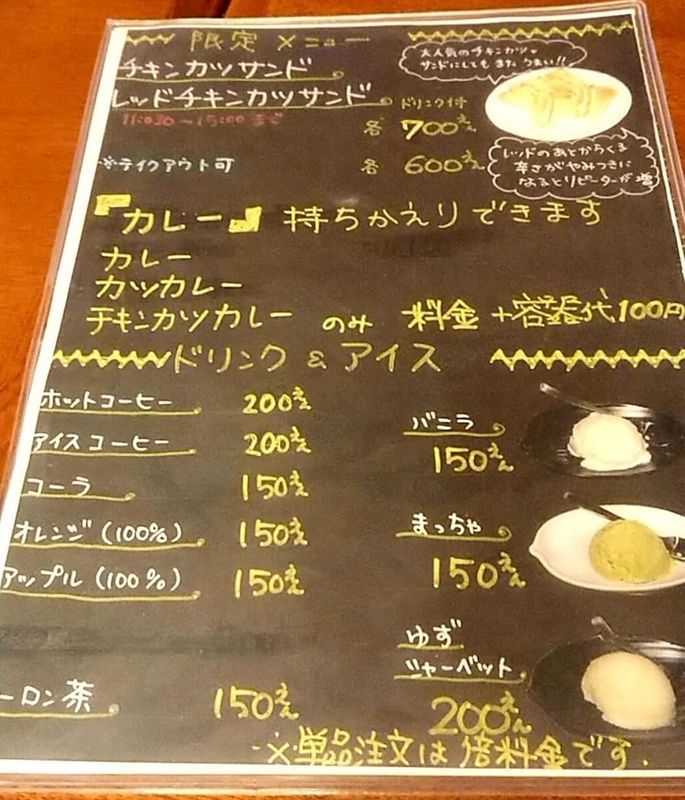 限定メニュー
大人気のチキンカツ
サンドにしてもまたうまい!!
チキンカツサンド
レッドチキンカツサンド ドリンク付
11:030～15:00まで 各 700えん
※テイクアウト可 各 600えん
レッドのあとからくる
辛さがやみつきに
なるとリピーターが増
『カレー』持ちかえりできます
カレー
カツカレー
チキンカツカレー のみ 料金+容器代100円
ドリンク&アイス
ホットコーヒー 200えん
アイスコーヒー 200えん
コーラ 150えん
オレンジ(100%) 150えん
アップル(100%) 150えん
ーロン茶 150えん
バニラ
150えん
まっちゃ
150えん
ゆず
シャーベット
200えん
※単品注文は倍料金です.